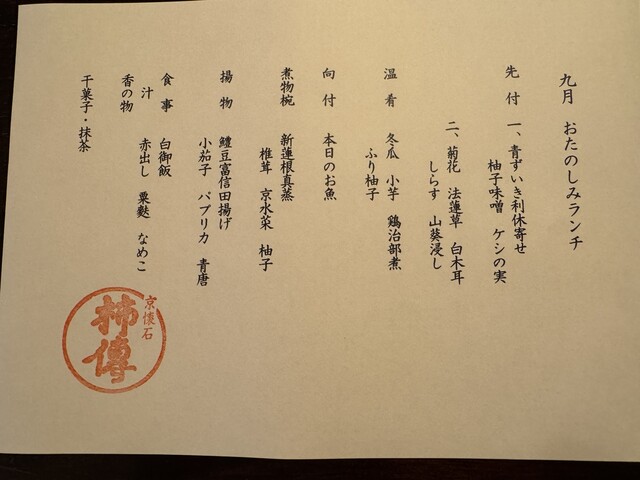 九月 おたのしみランチ
先付 一、青ずいき利休寄せ
柚子味噌 ケシの実
二、菊花 法蓮草 白木耳
しらす 山葵浸し
温肴 冬瓜 小芋 鶏治部煮
ふり柚子
向付 本日のお魚
煮物椀 新蓮根真蒸
椎茸 京水菜 柚子
揚物 鱧豆富信田揚げ
小茄子 パプリカ 青唐
食事 白御飯
汁 赤出し 粟麩 なめこ
香の物
干菓子・抹茶
京懐石
柿傳